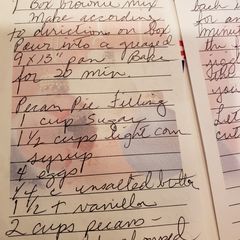 1 Box brownie mix
Make according
to directions on box
Pour into a greased
9 x 13" pan Bake
for 20 min.
Pecan Pie Filling
1 cup Sugar
1 1/2 cups light corn
syrup
4 eggs
1/4 c unsalted butter
1 1/2 t vanilla
2 cups pecans -
chopped
back in
for an
minut
the
you
Let